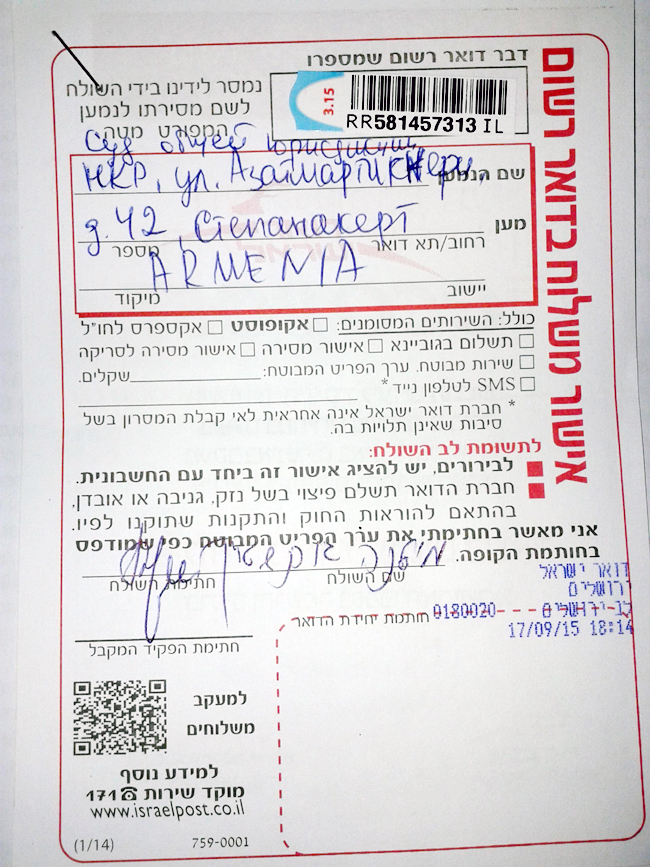 אישור משלוח בדואר רשום
דבר דואר רשום שמספרו
נמסר לידינו בידי השולח
לשם מסירתו לנמען
המפורט מטה
3.15
RR581457313 IL
Суд общей юрисдикции
НКР, ул. Азатмартикнери,
שם הנמען
д. 42, Степанакерт
מען
רחוב/תא דואר
מספר
ARMENIA
יישוב
מיקוד
כולל: השירותים המסומנים: אקופוסט אקספרס לחו"ל
תשלום בגוביינא אישור מסירה אישור מסירה לסריקה
שירות מבוטח. ערך הפריט המבוטח: שקלים.
SMS לטלפון נייד *
* חברת דואר ישראל אינה אחראית לאי קבלת המסרון בשל
סיבות שאינן תלויות בה.
לתשומת לב השולח:
לבירורים, יש להציג אישור זה ביחד עם החשבונית.
חברת הדואר תשלם פיצוי בשל נזק, גניבה או אובדן,
בהתאם להוראות החוק והתקנות שתוקנו לפיו.
אני מאשר בחתימתי את ערך הפריט המבוטח כפי שמודפס
בחותמת הקופה.
שם השולח
חתימת השולח
דואר ישראל
ירושלים
0180020
17/09/15 18:14
חותמת יחידת הדואר
חתימת הפקיד המקבל
למעקב
משלוחים
למידע נוסף
מוקד שירות 171
www.israelpost.co.il
(1/14)
759-0001